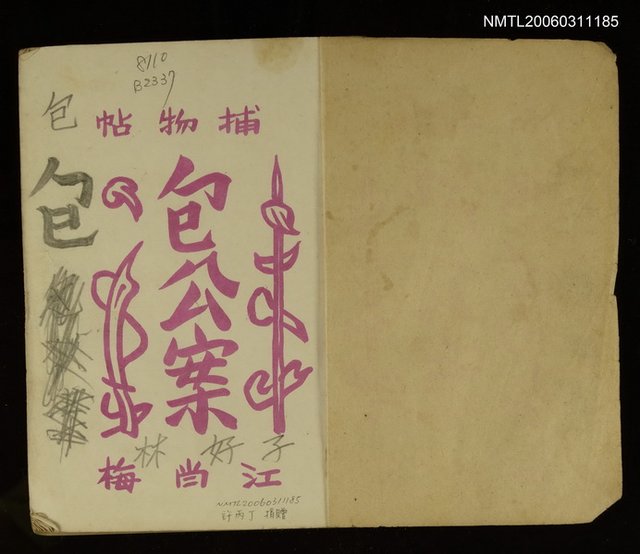 NMTL20060311185
8710
B2337
包
捕物帖
包
包公案
林好子
江尚梅
NMTL20060311185
許丙丁 捐贈